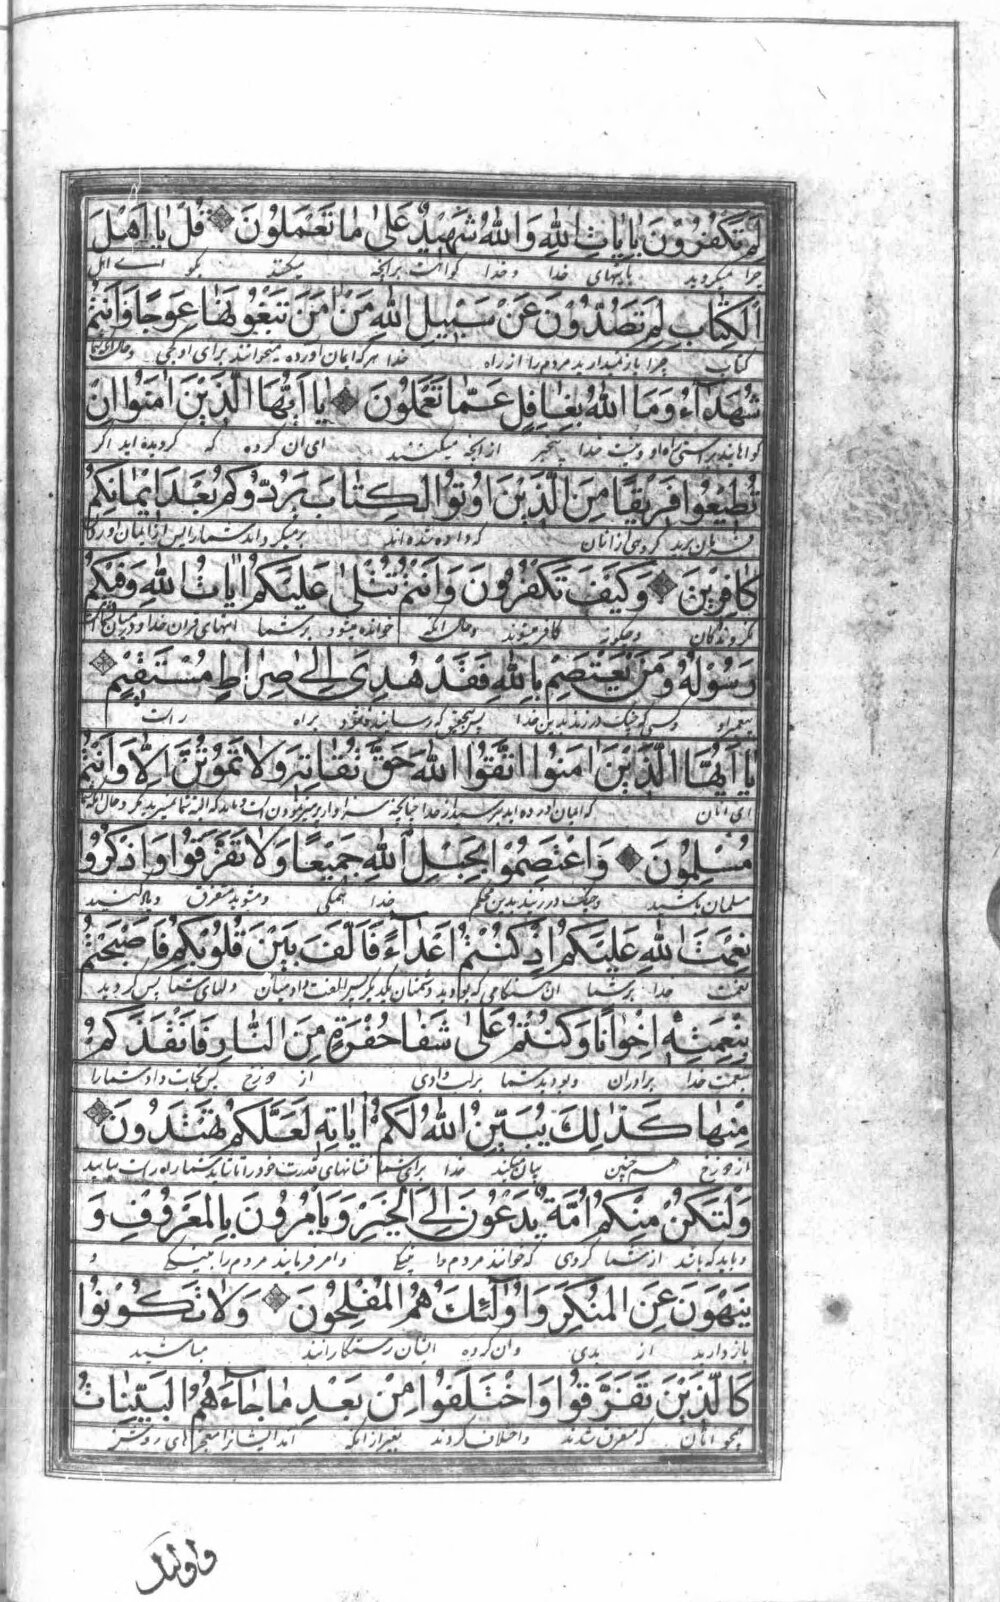 لِمَ تَكْفُرُونَ بِاٰيَاتِ اللّٰهِ وَاللّٰهُ شَهِيْدٌ عَلىٰ مٰا تَعْمَلُونَ قُلْ يٰا اَهْلَ
چرا میگروید بایتهای خدا و خدا گواه است برانچه میکنید بگو ای اهل
الْكِتٰابِ لِمَ تَصُدُّوْنَ عَنْ سَبِيْلِ اللّٰهِ مَنْ اٰمَنَ تَبْغُونَهٰا عِوَجًا وَ اَنْتُمْ
کتاب چرا باز میدارید مردم را از راه خدا هرکه ایمان آورده میخوانند برای او کجی و حال انکه شما
شُهَدٰٓاءُ وَ مَا اللّٰهُ بِغٰافِلٍ عَمّٰا تَعْمَلُونَ يٰا اَيُّهَا الَّذِيْنَ اٰمَنُوا اِنْ
گواهانید براستی راه او و نیست خدا بیخبر از انچه میکنید ای ان گروه که گرویده اید اگر
تُطِيْعُوا فَرِيْقًا مِنَ الَّذِيْنَ اُوتُوا الْكِتٰابَ يَرُدُّوْكُمْ بَعْدَ اِيْمٰانِكُمْ
فرمان برید گروهی از انان که داده شده اند برمیگردانند شما را پس از ایمان
كٰافِرِيْنَ وَكَيْفَ تَكْفُرُونَ وَ اَنْتُمْ تُتْلىٰ عَلَيْكُمْ اٰيٰاتُ اللّٰهِ وَفِيْكُمْ
نگروندگان و چگونه کافر میشوند و حال انکه خوانده میشود بر شما ایتهای قران خدا و در میان شما است
رَسُوْلُهُ وَ مَنْ يَعْتَصِمْ بِاللّٰهِ فَقَدْ هُدِيَ اِلىٰ صِرٰاطٍ مُسْتَقِيْمٍ
پیغمبر او و کسی که چنگ در زند بدین خدا پس بتحقیق که رسانیده شود براه راست
يٰا اَيُّهَا الَّذِيْنَ اٰمَنُوا اتَّقُوا اللّٰهَ حَقَّ تُقٰاتِهِ وَلاٰ تَمُوْتُنَّ اِلاّٰ وَ اَنْتُمْ
ای انان که ایمان اورده اید بترسید از خدا چنانچه سزاوار
مُسْلِمُونَ وَ اعْتَصِمُوْا بِحَبْلِ اللّٰهِ جَمِيْعًا وَلاٰ تَفَرَّقُوا وَ اذْكُرُوا
مسلمان باشید و چنگ در زنید بدین محکم خدا همگی و مشوید متفرق و یاد کنید
نِعْمَتَ اللّٰهِ عَلَيْكُمْ اِذْ كُنْتُمْ اَعْدٰٓاءً فَاَلَّفَ بَيْنَ قُلُوْبِكُمْ فَاَصْبَحْتُمْ
نعمت خدا بر شما ان هنگامی که بودید دشمنان یکدیگر پس الفت داد میان دلهای شما پس گردید
بِنِعْمَتِهِ اِخْوٰانًا وَكُنْتُمْ عَلىٰ شَفٰا حُفْرَةٍ مِنَ النّٰارِ فَاَنْقَذَكُمْ
بنعمت خدا برادران و بودید شما بر لب وادی از دوزخ پس نجات داد شما را
مِنْهٰا كَذٰلِكَ يُبَيِّنُ اللّٰهُ لَكُمْ اٰيٰاتِهِ لَعَلَّكُمْ تَهْتَدُونَ
از دوزخ همچنین بیان میکند خدا برای شما نشانهای قدرت خود را تا شاید شما راه راست بیابید
وَلْتَكُنْ مِنْكُمْ اُمَّةٌ يَدْعُوْنَ اِلَى الْخَيْرِ وَ يَأْمُرُونَ بِالْمَعْرُوْفِ وَ
و باید که باشد از شما گروهی که خوانند مردم را به نیکی و امر فرمایند مردم را به نیکی و
يَنْهَوْنَ عَنِ الْمُنْكَرِ وَ اُولٰٓئِكَ هُمُ الْمُفْلِحُونَ وَلاٰ تَكُوْنُوْا
باز دارند از بدی و ان گروه ایشان رستگارانند مباشید
كَالَّذِيْنَ تَفَرَّقُوا وَ اخْتَلَفُوا مِنْ بَعْدِ مٰا جٰٓاءَهُمُ الْبَيِّنٰاتُ
همچو انان که متفرق شدند و اختلاف کردند بعد از انکه امد ایشانرا معجزهای روشن
واولئک